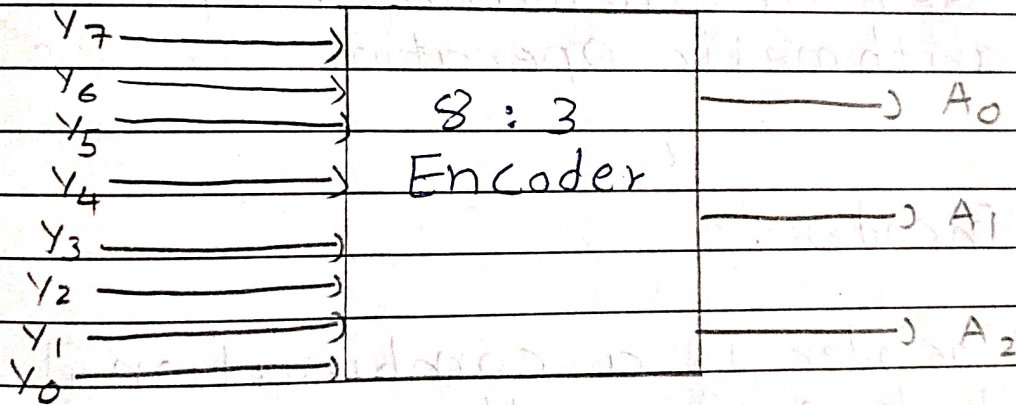 Y7
Y6
Y5
Y4
Y3
Y2
Y1
Y0
8 : 3
Encoder
A0
A1
A2